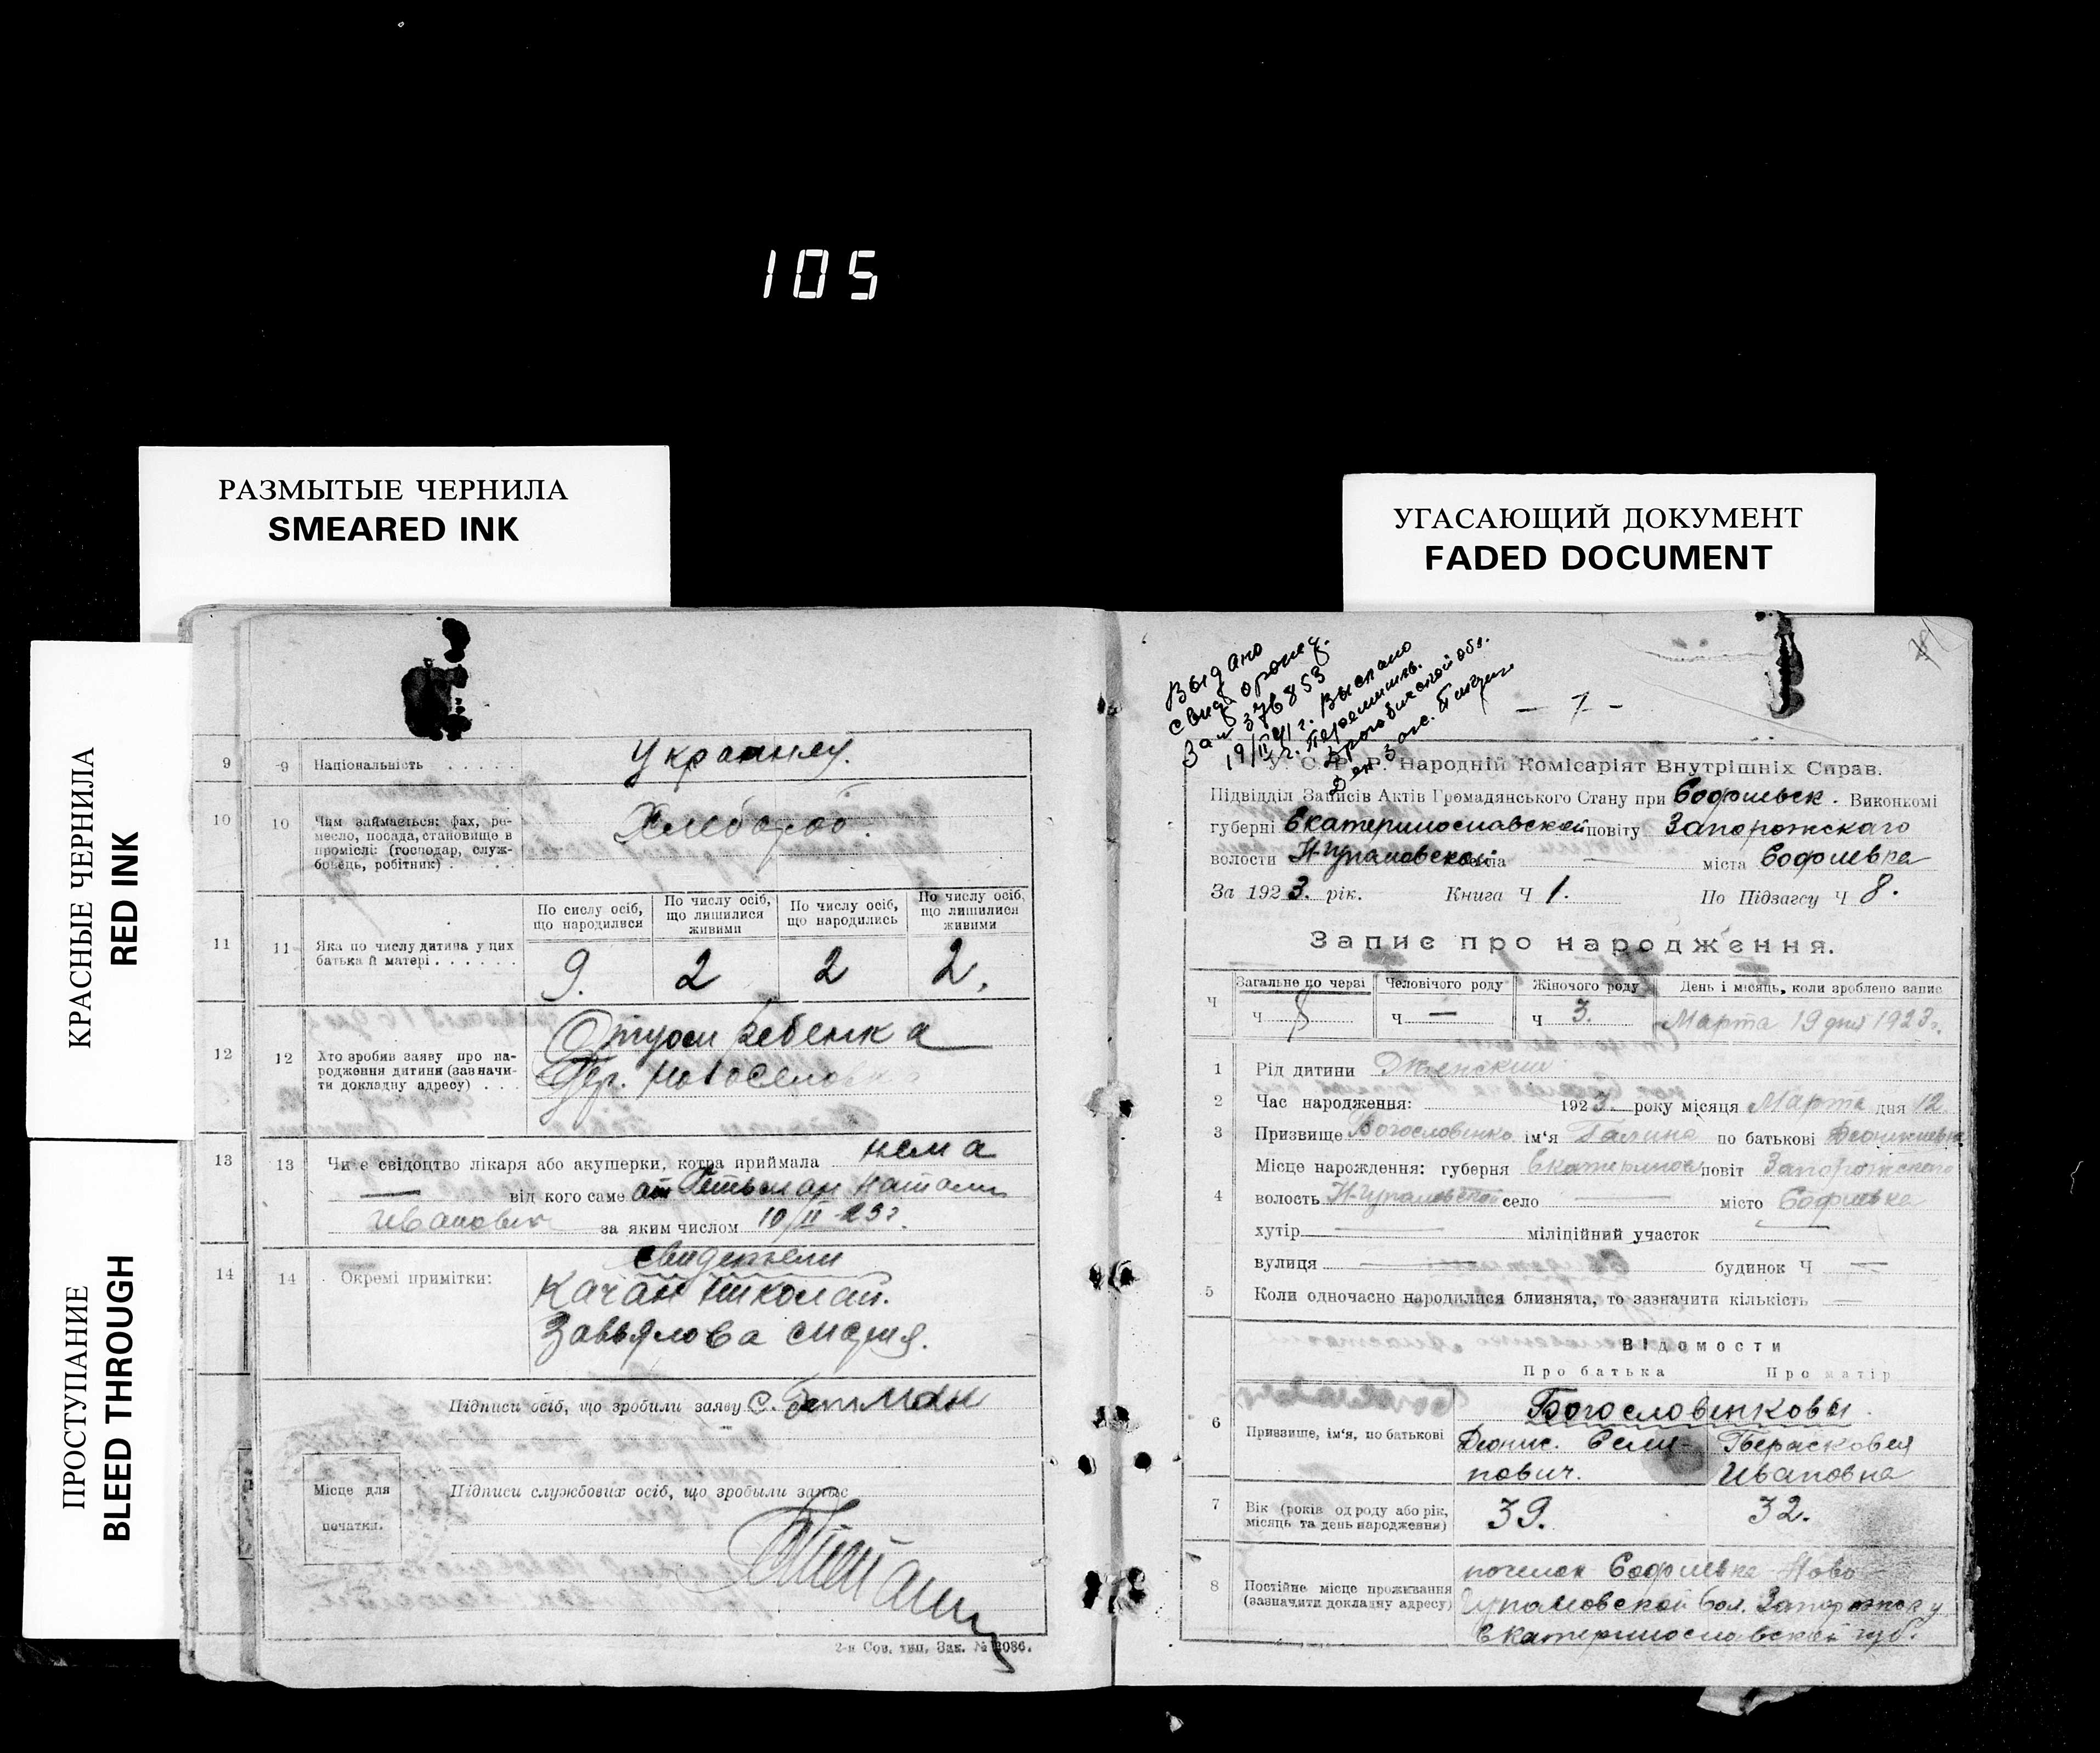 105
РАЗМЫТЫЕ ЧЕРНИЛА
SMEARED INK
УГАСАЮЩИЙ ДОКУМЕНТ
FADED DOCUMENT
КРАСНЫЕ ЧЕРНИЛА
RED INK
ПРОСТУПАНИЕ
BLEED THROUGH
9 9 Національність
10 10 Чим займається: фах, ре-
месло, посада, становище в
промислі: (господар, служ-
бовець, робітник)
Хлебороб.
11 11 Яка по числу дитина у цих
батька й матері
По сислу осіб, що народилися
По числу осіб, що лишилися живими
По числу осіб, що народились
По числу осіб, що лишилися живими
9. 2 2 2.
12 12 Хто зробив заяву про на-
родження дитини (зазначи-
ти докладну адресу)
ребенка
13 13 Чи є свідоцтво лікаря або акушерки, котра приймала нема
— від кого саме от Гетьман
за яким числом 10/II 23 г.
14 14 Окремі примітки: Свидетели
Качан Николай.
Завьялова Мария.
Підписи осіб, що зробили заяву С. Гетман
Місце для
печатки.
Підписи службових осіб, що зробыли запыс
2-я Сов. тип. Зак. № 3086.
Выдано
376853
Выслано
Дрогобичской обл.
— 7 —
У. С. Р. Р. Народній Комісаріят Внутрішніх Справ.
Підвідділ Записів Актів Громадянського Стану при Софиевск. Виконкомі
губерні Екатеринославской повіту Запорожскаго
волости села — міста Софиевка
За 1923. рік. Книга Ч 1. По Підзагсу Ч 8.
Запис про народження.
Загальне по черзі Человічого роду Жіночого роду День і місяць, коли зроблено запис
Ч Ч 8 Ч — Ч 3. Марта 19 дня 1923 г.
1 Рід дитини Женский
2 Час народження: 1923 року місяця Марта дня 12
3 Призвище Богословенко ім'я Галина по батькові
Місце нарождення: губерня повіт Запорожского
4 волость село — місто Софиевка
хутір — міліційний участок
вулиця — будинок Ч —
5 Коли одночасно народилися близнята, то зазначити кількість —
Відомости
Про батька Про матір
6 Призвище, ім'я, по батькові
Богословенковы
Дионис. Фили- Парасковея
пович. Ивановна
7 Вік (років од роду або рік,
місяць та день народження) 39. 32.
8 Постійне місце проживання
(зазначити докладну адресу)
поселок Софиевка Ново-
вол. Запорожск у
Екатеринославской губ.